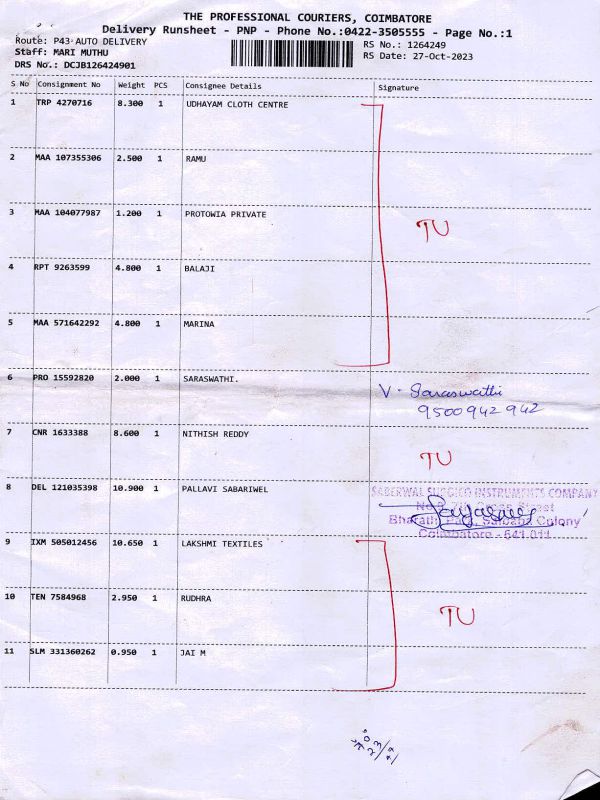 THE PROFESSIONAL COURIERS, COIMBATORE
Delivery Runsheet - PNP - Phone No.:0422-3505555 - Page No.:1
Route: P43-AUTO DELIVERY
Staff: MARI MUTHU
DRS No.: DCJB126424901
RS No.: 1264249
RS Date: 27-Oct-2023
S No Consignment No Weight PCS Consignee Details Signature
1 TRP 4270716 8.300 1 UDHAYAM CLOTH CENTRE
2 MAA 107355306 2.500 1 RAMU
3 MAA 104077987 1.200 1 PROTOWIA PRIVATE
TU
4 RPT 9263599 4.800 1 BALAJI
5 MAA 571642292 4.800 1 MARINA
6 PRO 15592820 2.000 1 SARASWATHI. V. Saraswathi
9500942942
7 CNR 1633388 8.600 1 NITHISH REDDY
TU
8 DEL 121035398 10.900 1 PALLAVI SABARIWEL SABERWAL SURGICO INSTRUMENTS COMPANY
Street
Bharathi Park, Saibaba Colony
Coimbatore - 641 011
9 IXM 505012456 10.650 1 LAKSHMI TEXTILES
10 TEN 7584968 2.950 1 RUDHRA
TU
11 SLM 331360262 0.950 1 JAI M